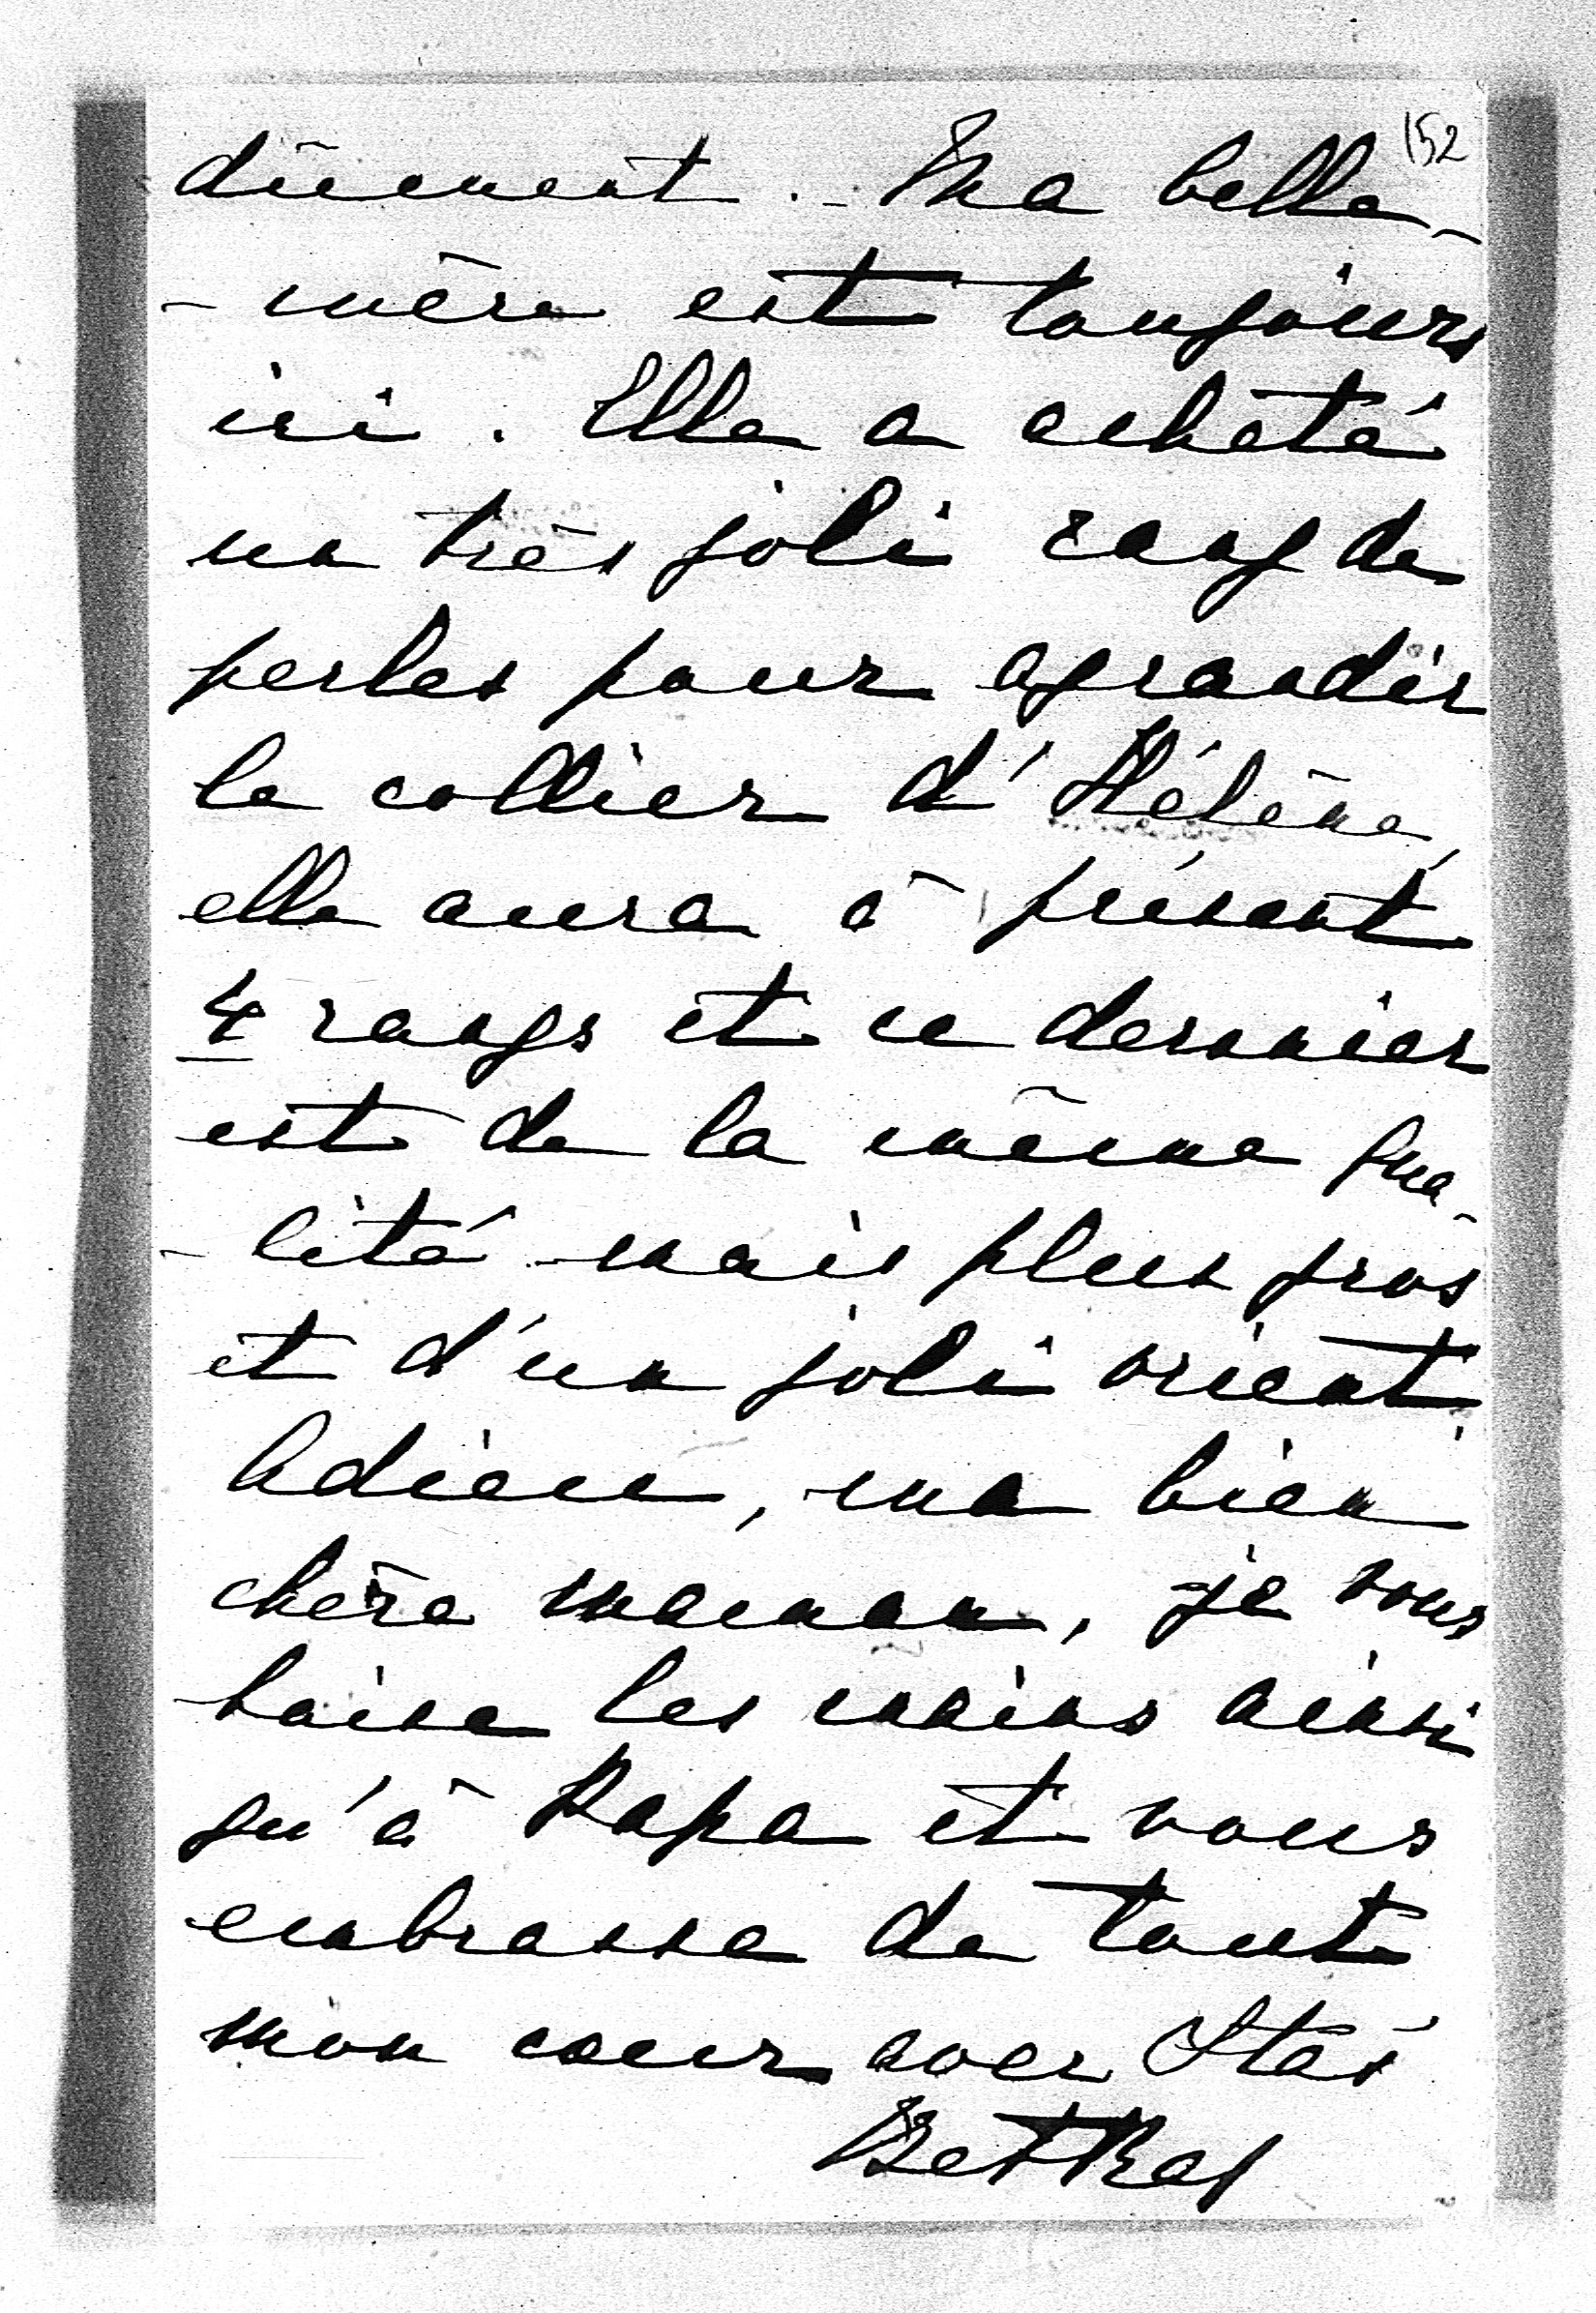 152
dûment. - Ma belle-
- mère est toujours
ici. Elle a acheté
un très joli rang de
perles pour agrandir
le collier d'Hélène,
elle aura à présent
4 rangs et ce dernier
est de la même qua-
- lité mais plus gros
et d'un joli orient.
Adieu, ma bien
chère maman, je vous
baise les mains ainsi
qu'à Papa et vous
embrasse de tout
mon cœur avec Stas